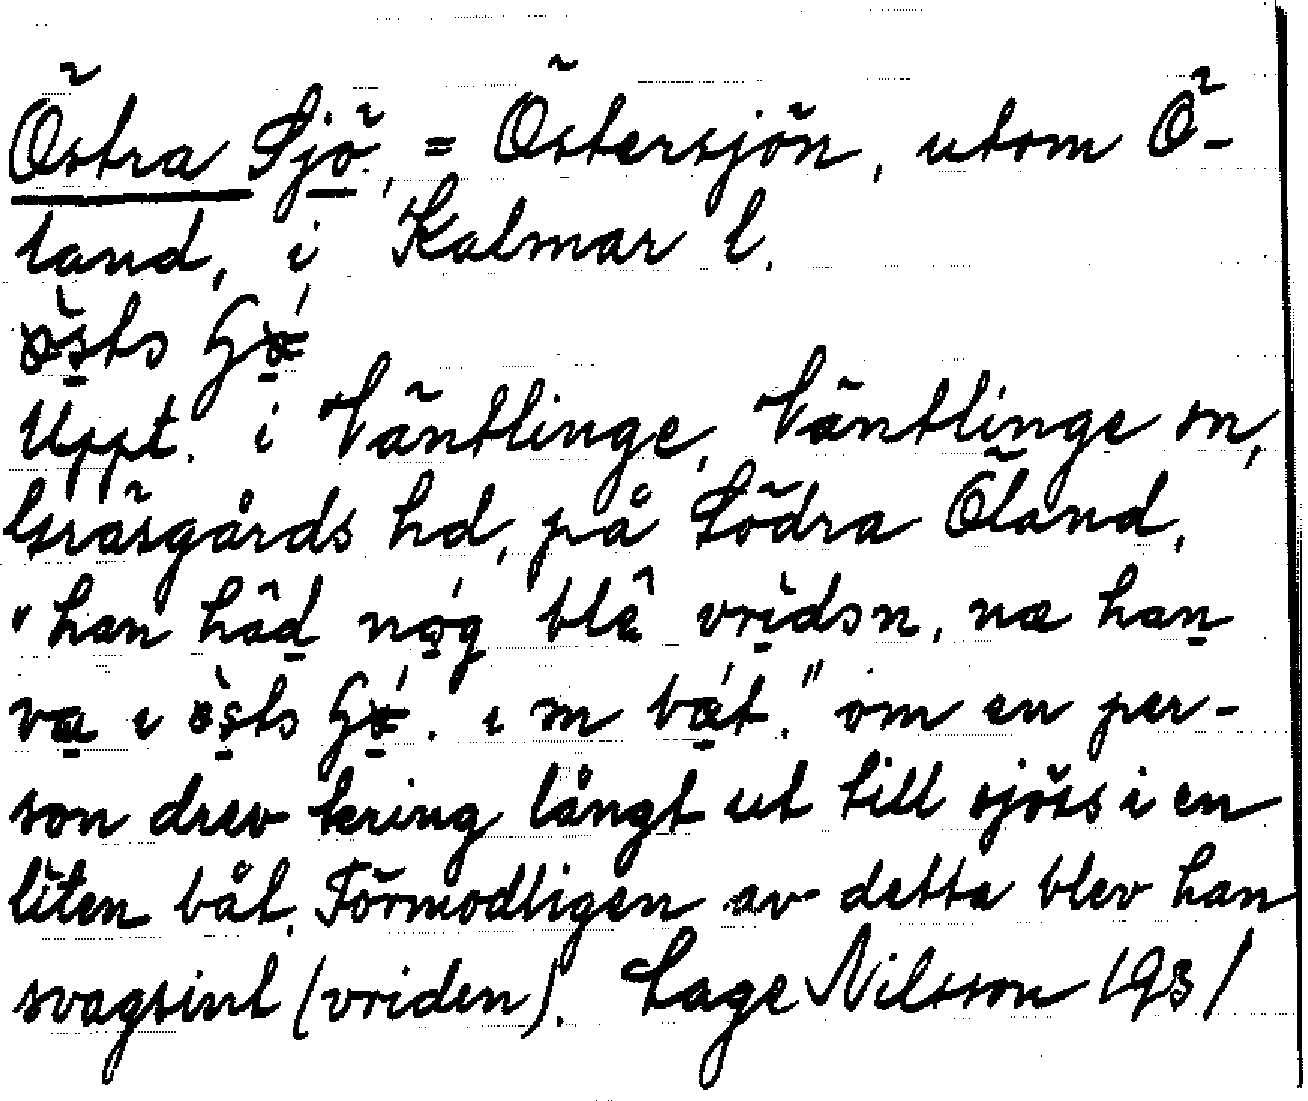 Östra Sjö, = Östersjön, utom Ö-
land, i Kalmar l.
Uppt. i Väntlinge, Väntlinge sn,
Gräsgårds hd, på Södra Öland,
"han håd nog blê vridsn, næ han
va ı i m båt." om en per-
son drev kring långt ut till sjöss i en
liten båt. Förmodligen av detta blev han
svagsint (vriden). Sage Nilsson 1931